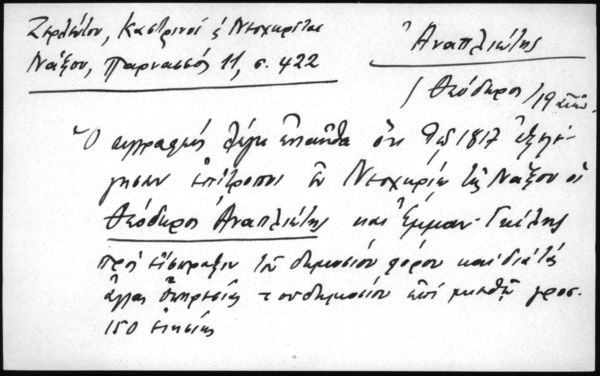 Ζερλέντου, Καστρινοί & Νεοχωρίται
Νάξου, Παρνασσός 11, σ. 422
Ἀναπλιώτης
/ Θεόδωρος / 19 αἰών.
Ὁ συγγραφεύς λέγει ἐνταῦθα ὅτι τῷ 1817 ἐξελέ-
γησαν ἐπίτροποι τῶν Νεοχωρίων τῆς Νάξου οἱ
Θεόδωρος Ἀναπλιώτης καὶ Ἐμμαν.
πρός εἴσπραξιν τοῦ δημοσίου φόρου καὶ διά τάς
ἄλλας ὑπηρεσίας τοῦ δημοσίου ἐπί μισθῷ γροσ.
150 ἐτησίως